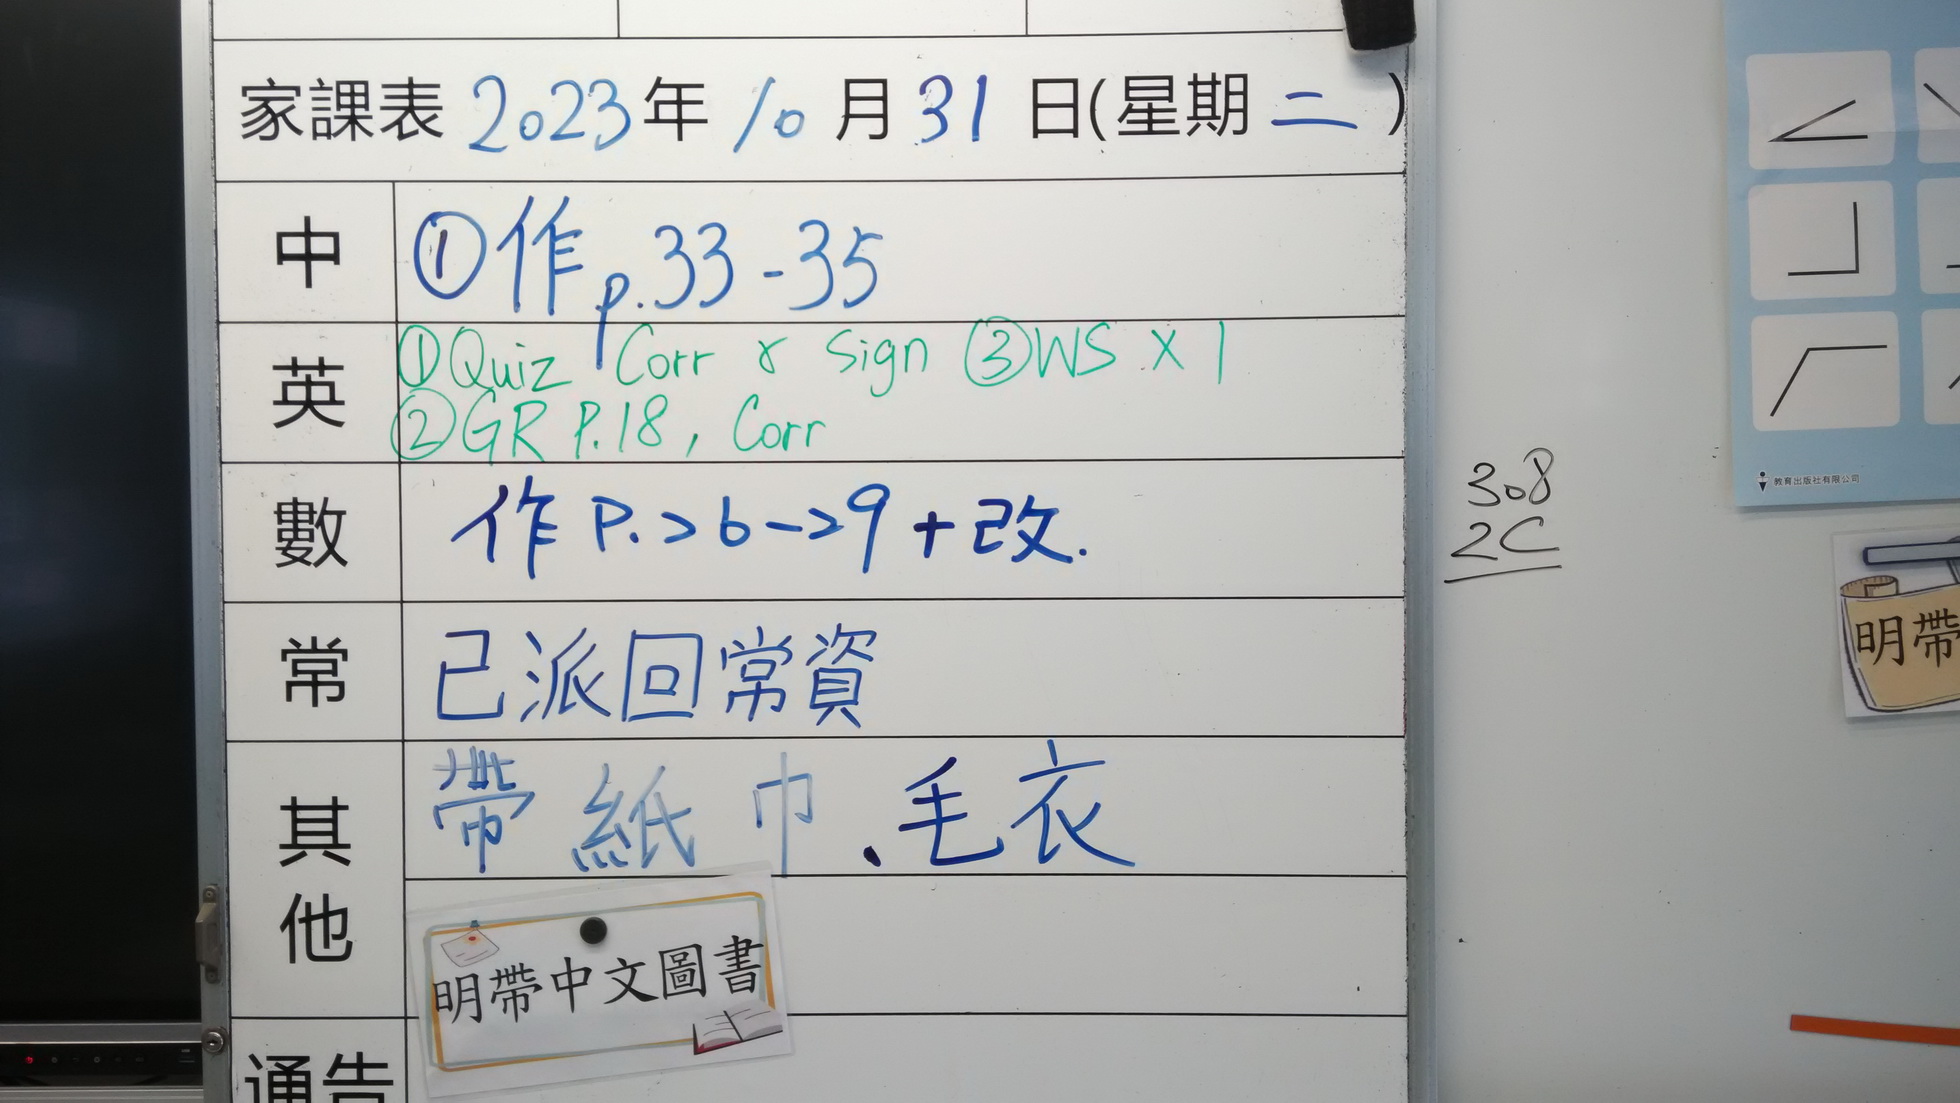 家課表 2023年 10 月 31 日(星期 二 )
中 ①作 p.33-35
英 ①Quiz Corr & Sign ③WS X 1
②GR P.18, Corr
數 作 P.26-29 + 改.
常 已派回常資
其他 帶紙巾、毛衣
明帶中文圖書
通告
308
2C
教育出版社有限公司
明帶